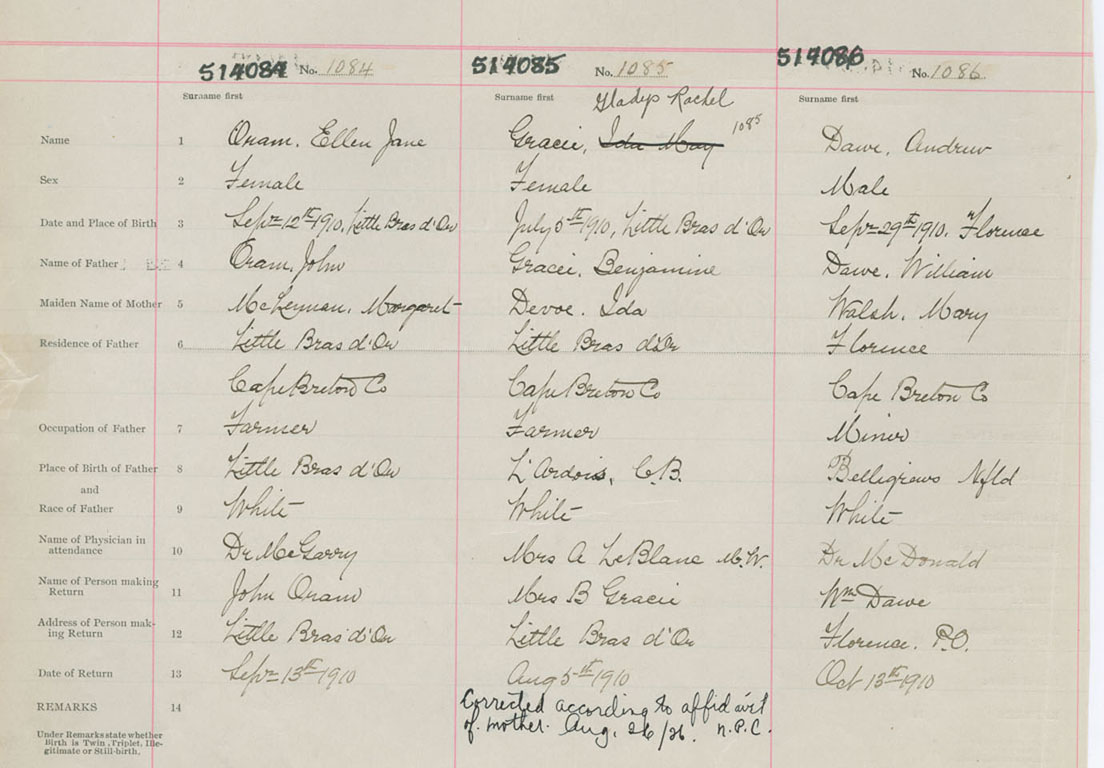 514084 No. 1084 514085 No. 1085 514086 No. 1086
Surname first Surname first Gladys Rachel Surname first
Name 1 Oram, Ellen Jane Gracie, Ida May 1085 Dawe, Andrew
Sex 2 Female Female Male
Date and Place of Birth 3 Sept 12th 1910, Little Bras d'Or July 5th 1910, Little Bras d'Or Sept 29th 1910, Florence
Name of Father 4 Oram, John Gracie, Benjamine Dawe, William
Maiden Name of Mother 5 McLennan, Margaret Devoe, Ida Walsh, Mary
Residence of Father 6 Little Bras d'Or Little Bras d'Or Florence
Cape Breton Co Cape Breton Co Cape Breton Co
Occupation of Father 7 Farmer Farmer Miner
Place of Birth of Father 8 Little Bras d'Or L'Ardois, C.B. Belligrews Nfld
and
Race of Father 9 White White White
Name of Physician in
attendance 10 Dr McGarry Mrs A LeBlanc M.W. Dr McDonald
Name of Person making
Return 11 John Oram Mrs B Gracie Wm Dawe
Address of Person mak-
ing Return 12 Little Bras d'Or Little Bras d'Or Florence. P.O.
Date of Return 13 Sept 13th 1910 Aug 5th 1910 Oct 13th 1910
REMARKS 14 Corrected according to affidavit
of mother. Aug. 26/26. N.P.C.
Under Remarks state whether
Birth is Twin, Triplet, Ille-
gitimate or Still-birth.